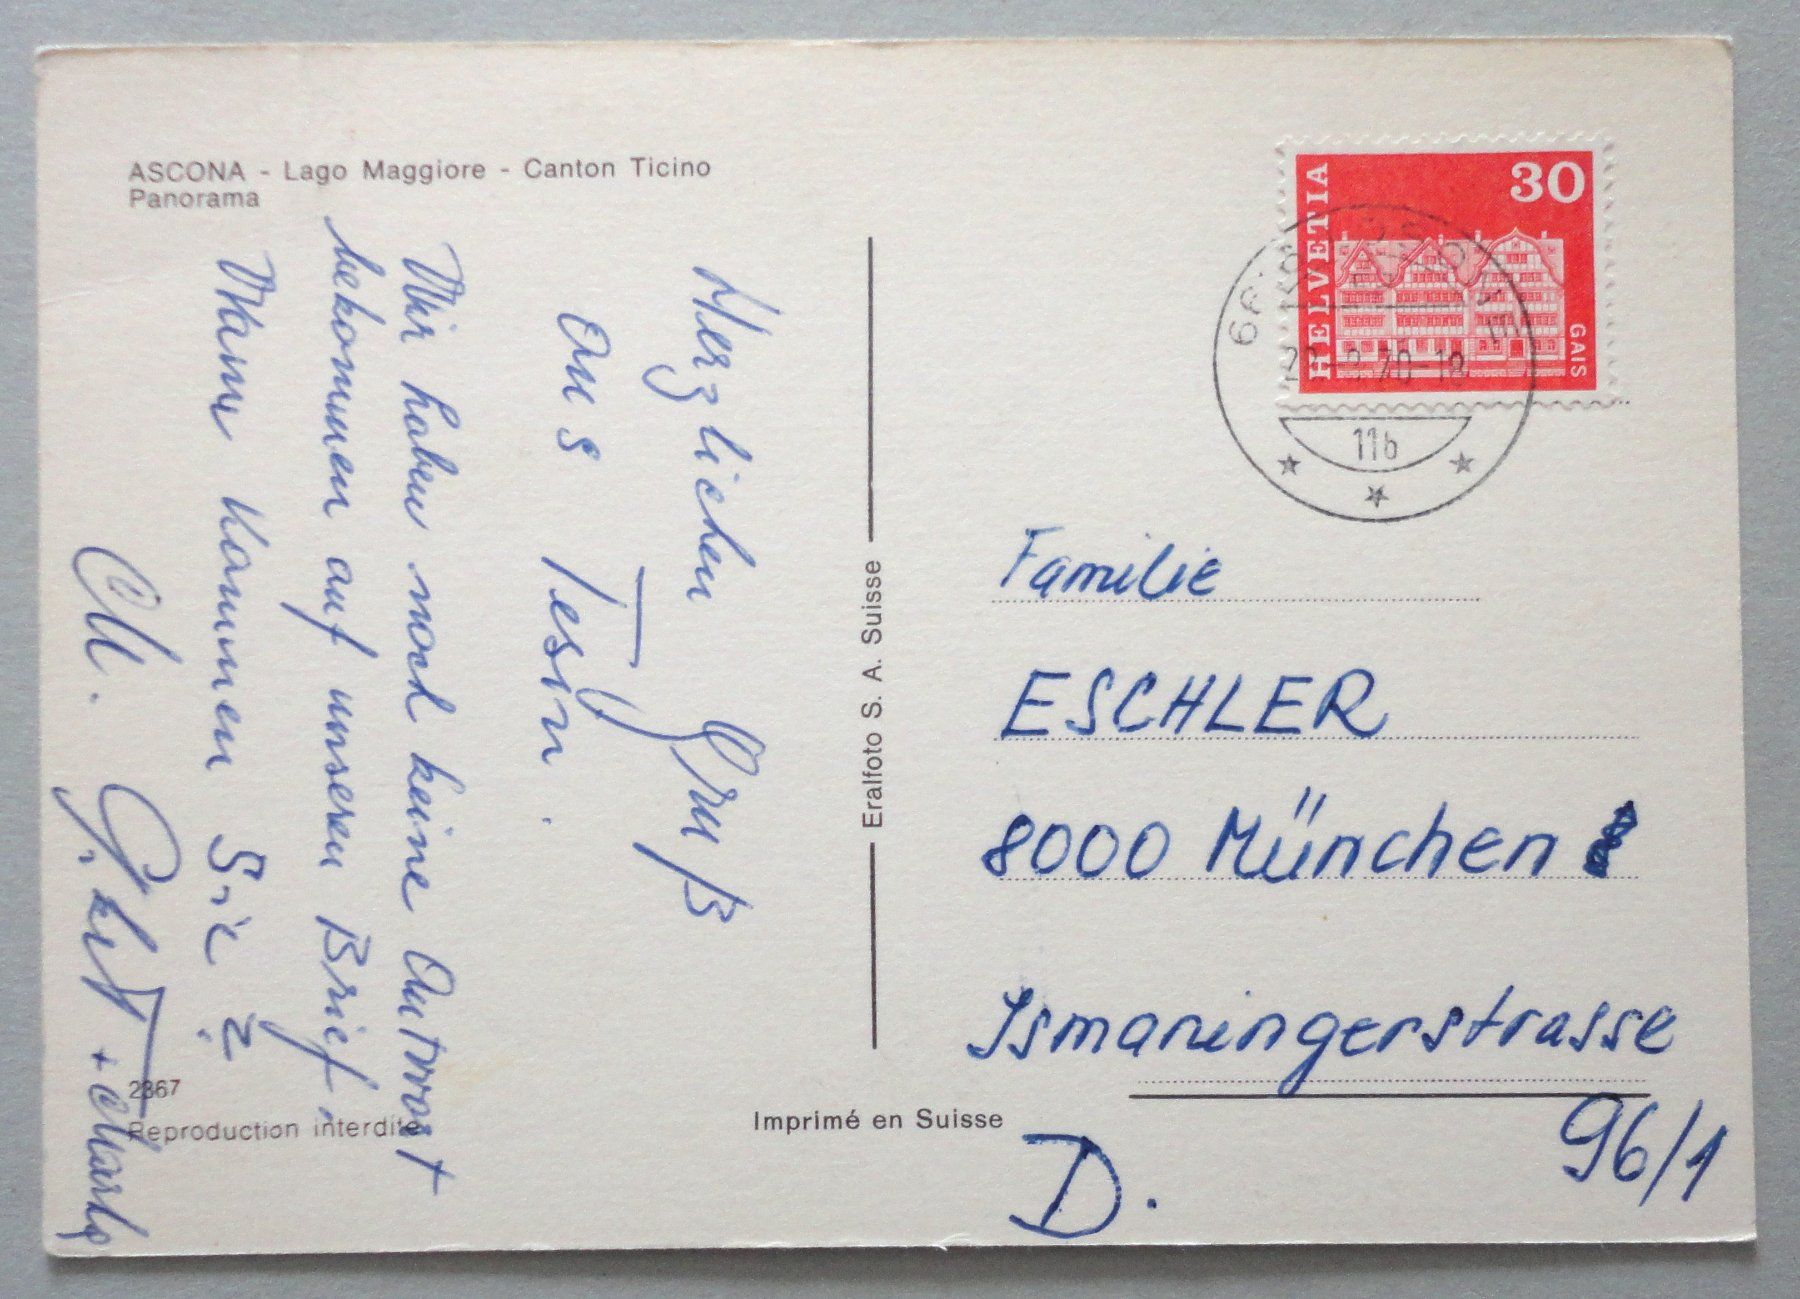 ASCONA - Lago Maggiore - Canton Ticino
Panorama
Herzlichen Gruß
aus Tesin.
Wir haben noch keine Antwort
bekommen auf unseren Brief.
Wann kommen Sie?
M.
+
Eralfoto S. A. Suisse
2367
Reproduction interdite
Imprimé en Suisse
HELVETIA
30
GAIS
70-18
11b
Familie
ESCHLER
8000 München
Ismaningerstrasse
96/1
D.